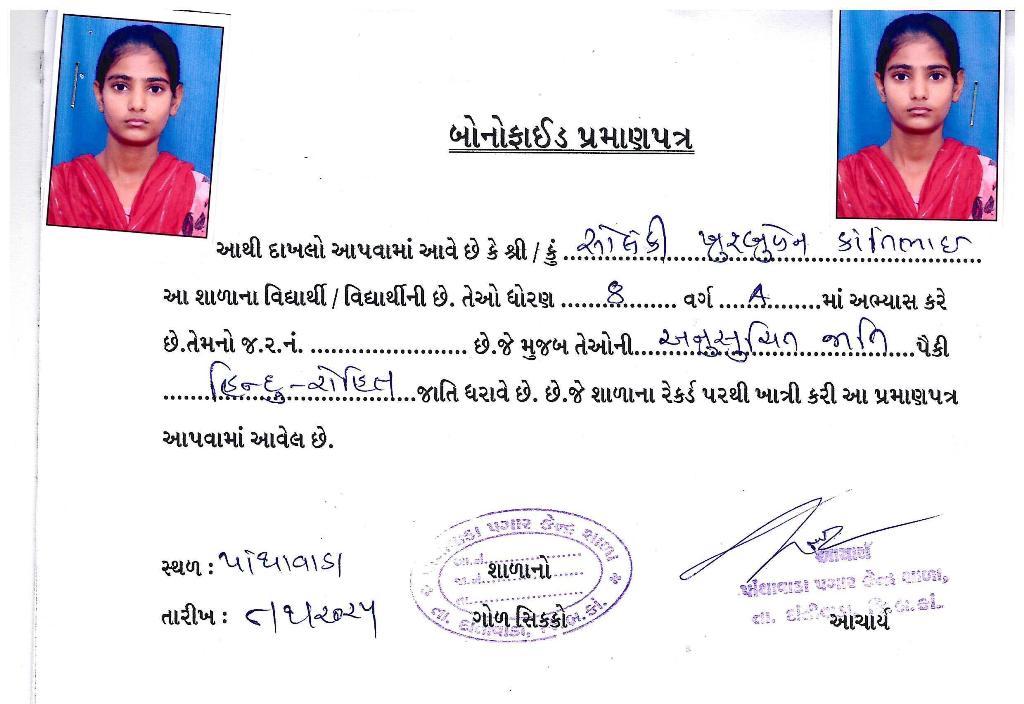 બોનોફાઈડ પ્રમાણપત્ર
આથી દાખલો આપવામાં આવે છે કે શ્રી / કું સોલંકી ખુશ્બુબેન કાંતિભાઇ
આ શાળાના વિદ્યાર્થી / વિદ્યાર્થીની છે. તેઓ ધોરણ 8 વર્ગ A માં અભ્યાસ કરે
છે.તેમનો જ.ર.નં. છે.જે મુજબ તેઓની અનુસુચિત જાતિ પૈકી
હિન્દુ-રોહિત જાતિ ધરાવે છે. છે.જે શાળાના રેકર્ડ પરથી ખાત્રી કરી આ પ્રમાણપત્ર
આપવામાં આવેલ છે.
સ્થળ : પાંથાવાડા
પગાર કેન્દ્ર શાળા
શાળાનો
આચાર્ય
પાંથાવાડા પગાર કેન્દ્ર શાળા,
તારીખ :
ગોળ સિક્કો
તા. દાંતીવાડા, જિ.બ.કાં.
તા. દાંતીવાડા, જિ.બ.કાં.
આચાર્ય